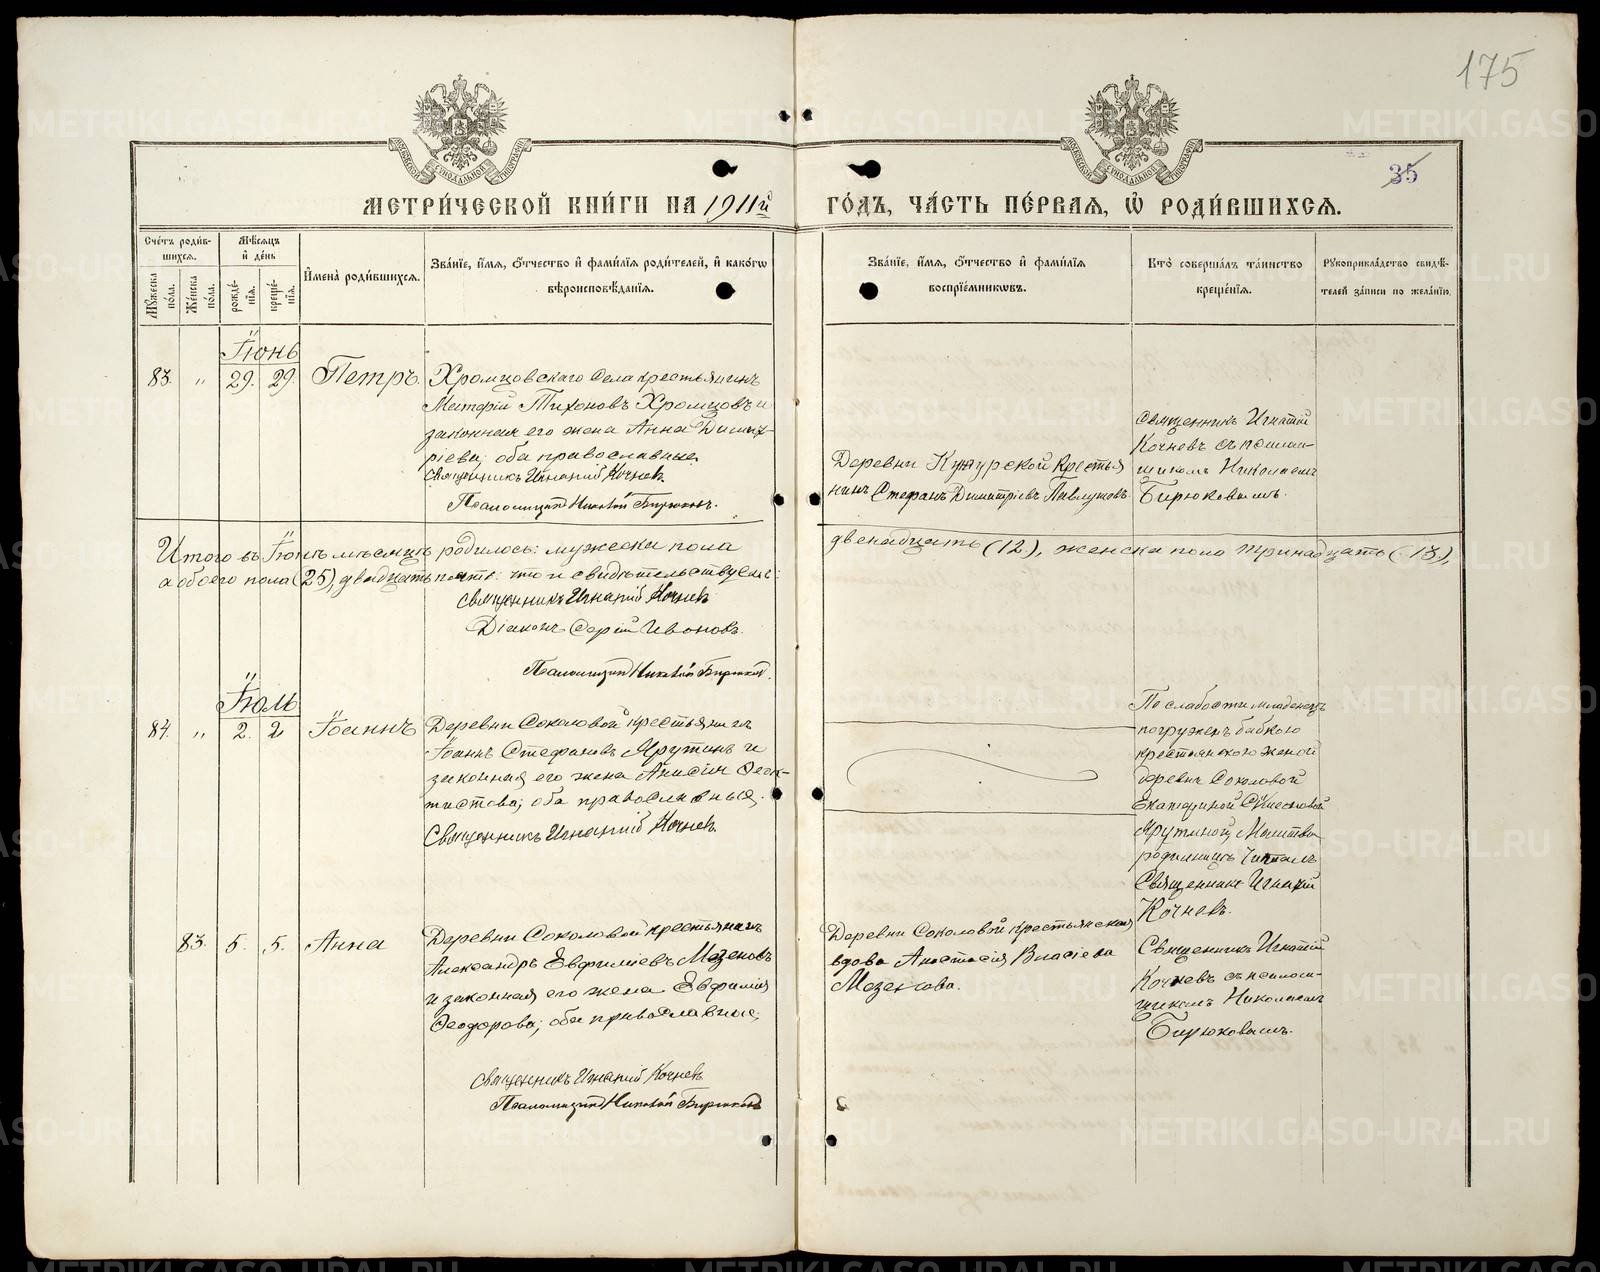 175
35
МЕТРИ́ЧЕСКОЙ КНИ́ГИ НА 1911й ГО́ДЪ, ЧА́СТЬ ПЕ́РВАЯ, Ѡ РОДИ́ВШИХСЯ.
Сче́тъ роди́в-
шихся.
Мѣ́сяцъ
и҆ де́нь
Му́жеска по́ла.
Же́нска по́ла.
рожде́-
нія.
креще́-
нія.
И҆мена̀ роди́вшихся.
Зва́ніе, и҆́мя, ѻ҆́тчество и҆ фами́лія роди́телей, и҆ како́гѡ
вѣроисповѣ́данія.
Зва́ніе, и҆́мя, ѻ҆́тчество и҆ фами́лія
воспріе́мниковъ.
Кто̀ соверша́лъ та́инство
креще́нія.
Рꙋкоприкла́дство свидѣ́-
телей за́писи по жела́нію.
Іюнь
83. " 29. 29. Петръ
Хромцовскаго села крестьянинъ
Тихоновъ Хромцовъ и
законная его жена Анна Димит-
ріева, оба православные
Священникъ Игнатій Кочневъ.
Псаломщикъ Николай Бирюковъ.
Деревни крестья
нинъ Стефанъ Димитріевъ
Священникъ Игнатій
Кочневъ съ псалом-
щикомъ Николаемъ
Бирюковымъ.
Итого въ Іюнѣ мѣсяцѣ родилось: мужеска пола двенадцать (12), женска пола тринадцать (13),
а обоего пола (25), двадцать пять: что и свидѣтельствуемъ:
Священникъ Игнатій Кочневъ
Діаконъ Сергій Ивановъ.
Псаломщикъ Николай Бирюковъ.
Іюль
84. " 2. 2 Іоаннъ
Деревни Соколовой крестьянинъ
Іоаннъ Стефановъ Ярутинъ и
законная его жена Анисія Феок-
тистова; оба православные,
Священникъ Игнатій Кочневъ
По слабости младенецъ
погруженъ бабкою
крестьянскою женой
деревни Соколовой
Екатериной
Ярутиной, Молитвы
родильницѣ читалъ
Священникъ Игнатій
Кочневъ.
83. 5. 5. Анна
Деревни Соколовой крестьянинъ
Александръ Евфиміевъ Мезеновъ
и законная его жена Евфимія
Феодорова; оба православные;
Священникъ Игнатій Кочневъ
Псаломщикъ Николай Бирюковъ
Деревни Соколовой крестьянская
вдова Анастасія Власіева
Мезенова.
Священникъ Игнатій
Кочневъ съ псалом-
щикомъ Николаемъ
Бирюковымъ.
METRIKI.GASO-URAL.RU